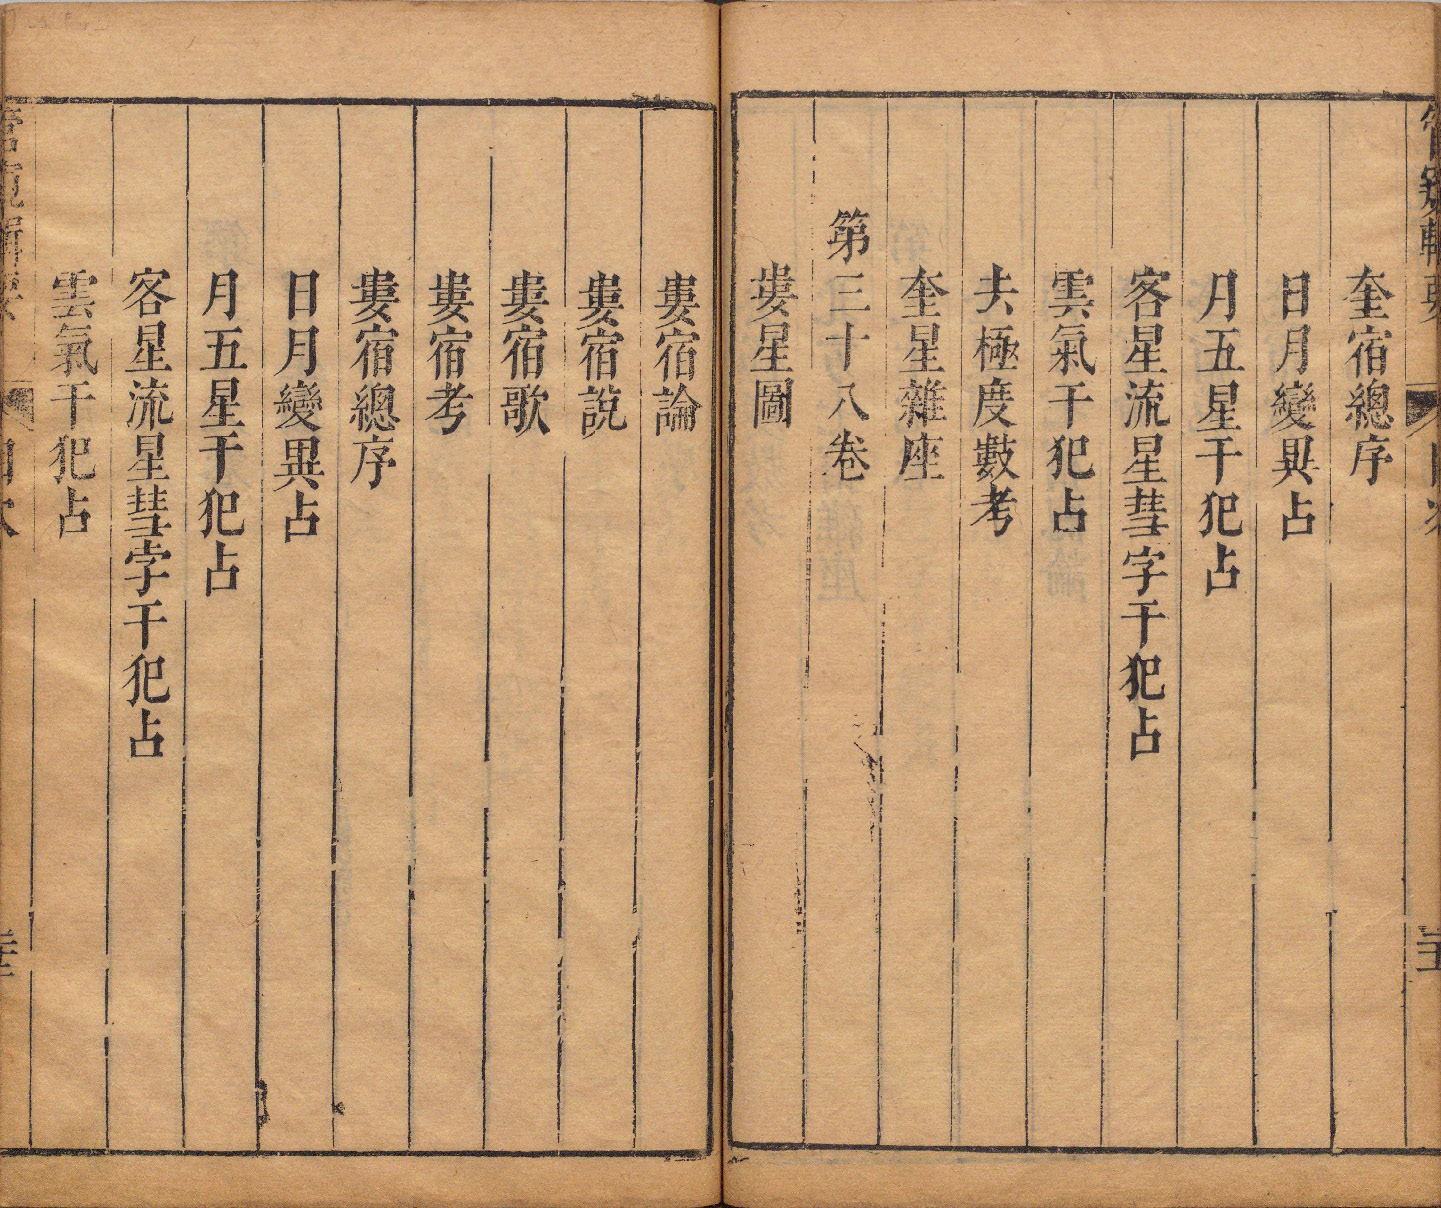 奎宿總序
日月變異占
月五星干犯占
客星流星彗孛干犯占
雲氣干犯占
去極度數考
奎星雜座
第三十八卷
婁星圖
婁宿論
婁宿說
婁宿歌
婁宿考
婁宿總序
日月變異占
月五星干犯占
客星流星彗孛干犯占
雲氣干犯占